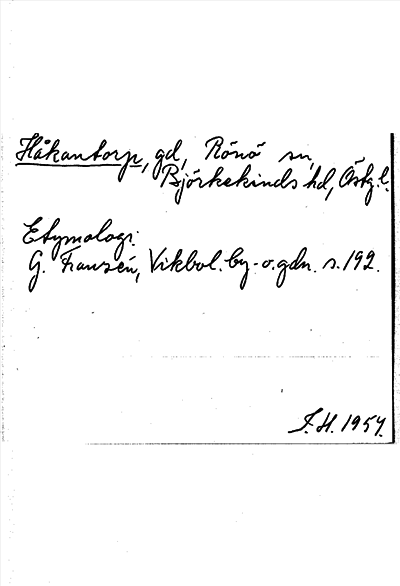 Håkantorp, gd, Rönö sn,
Björkekinds hd, Östg. l.
Etymologi:
G. Franzén, Vikbol. by- o. gdn. s. 192.
I. H. 1957.